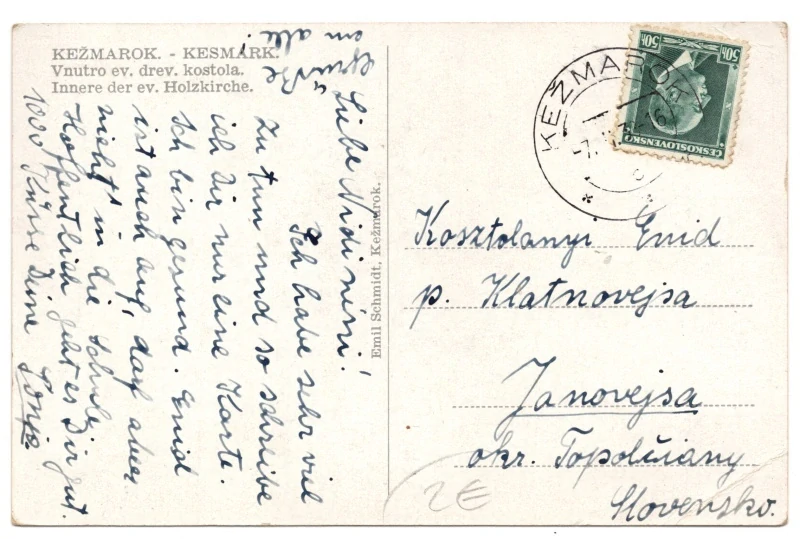 KEŽMAROK. - KESMARK.
Vnutro ev. drev. kostola.
Innere der ev. Holzkirche.
Liebe Nidi néni!
Ich habe sehr viel
zu tun und so schreibe
ich dir nur eine Karte.
Ich bin gesund. Enid
ist auch auf, darf aber
nicht in die Schule.
Hoffentlich geht es Dir gut.
1000 Küsse Deine Sonja.
Grüße
an alle!
Emil Schmidt, Kežmarok.
KEŽMAROK
50h
50h
ČESKOSLOVENSKO
Kosztolanyi Enid
p. Klatnovejsa
Janovejsa
okr. Topolčiany
Slovensko.
2€